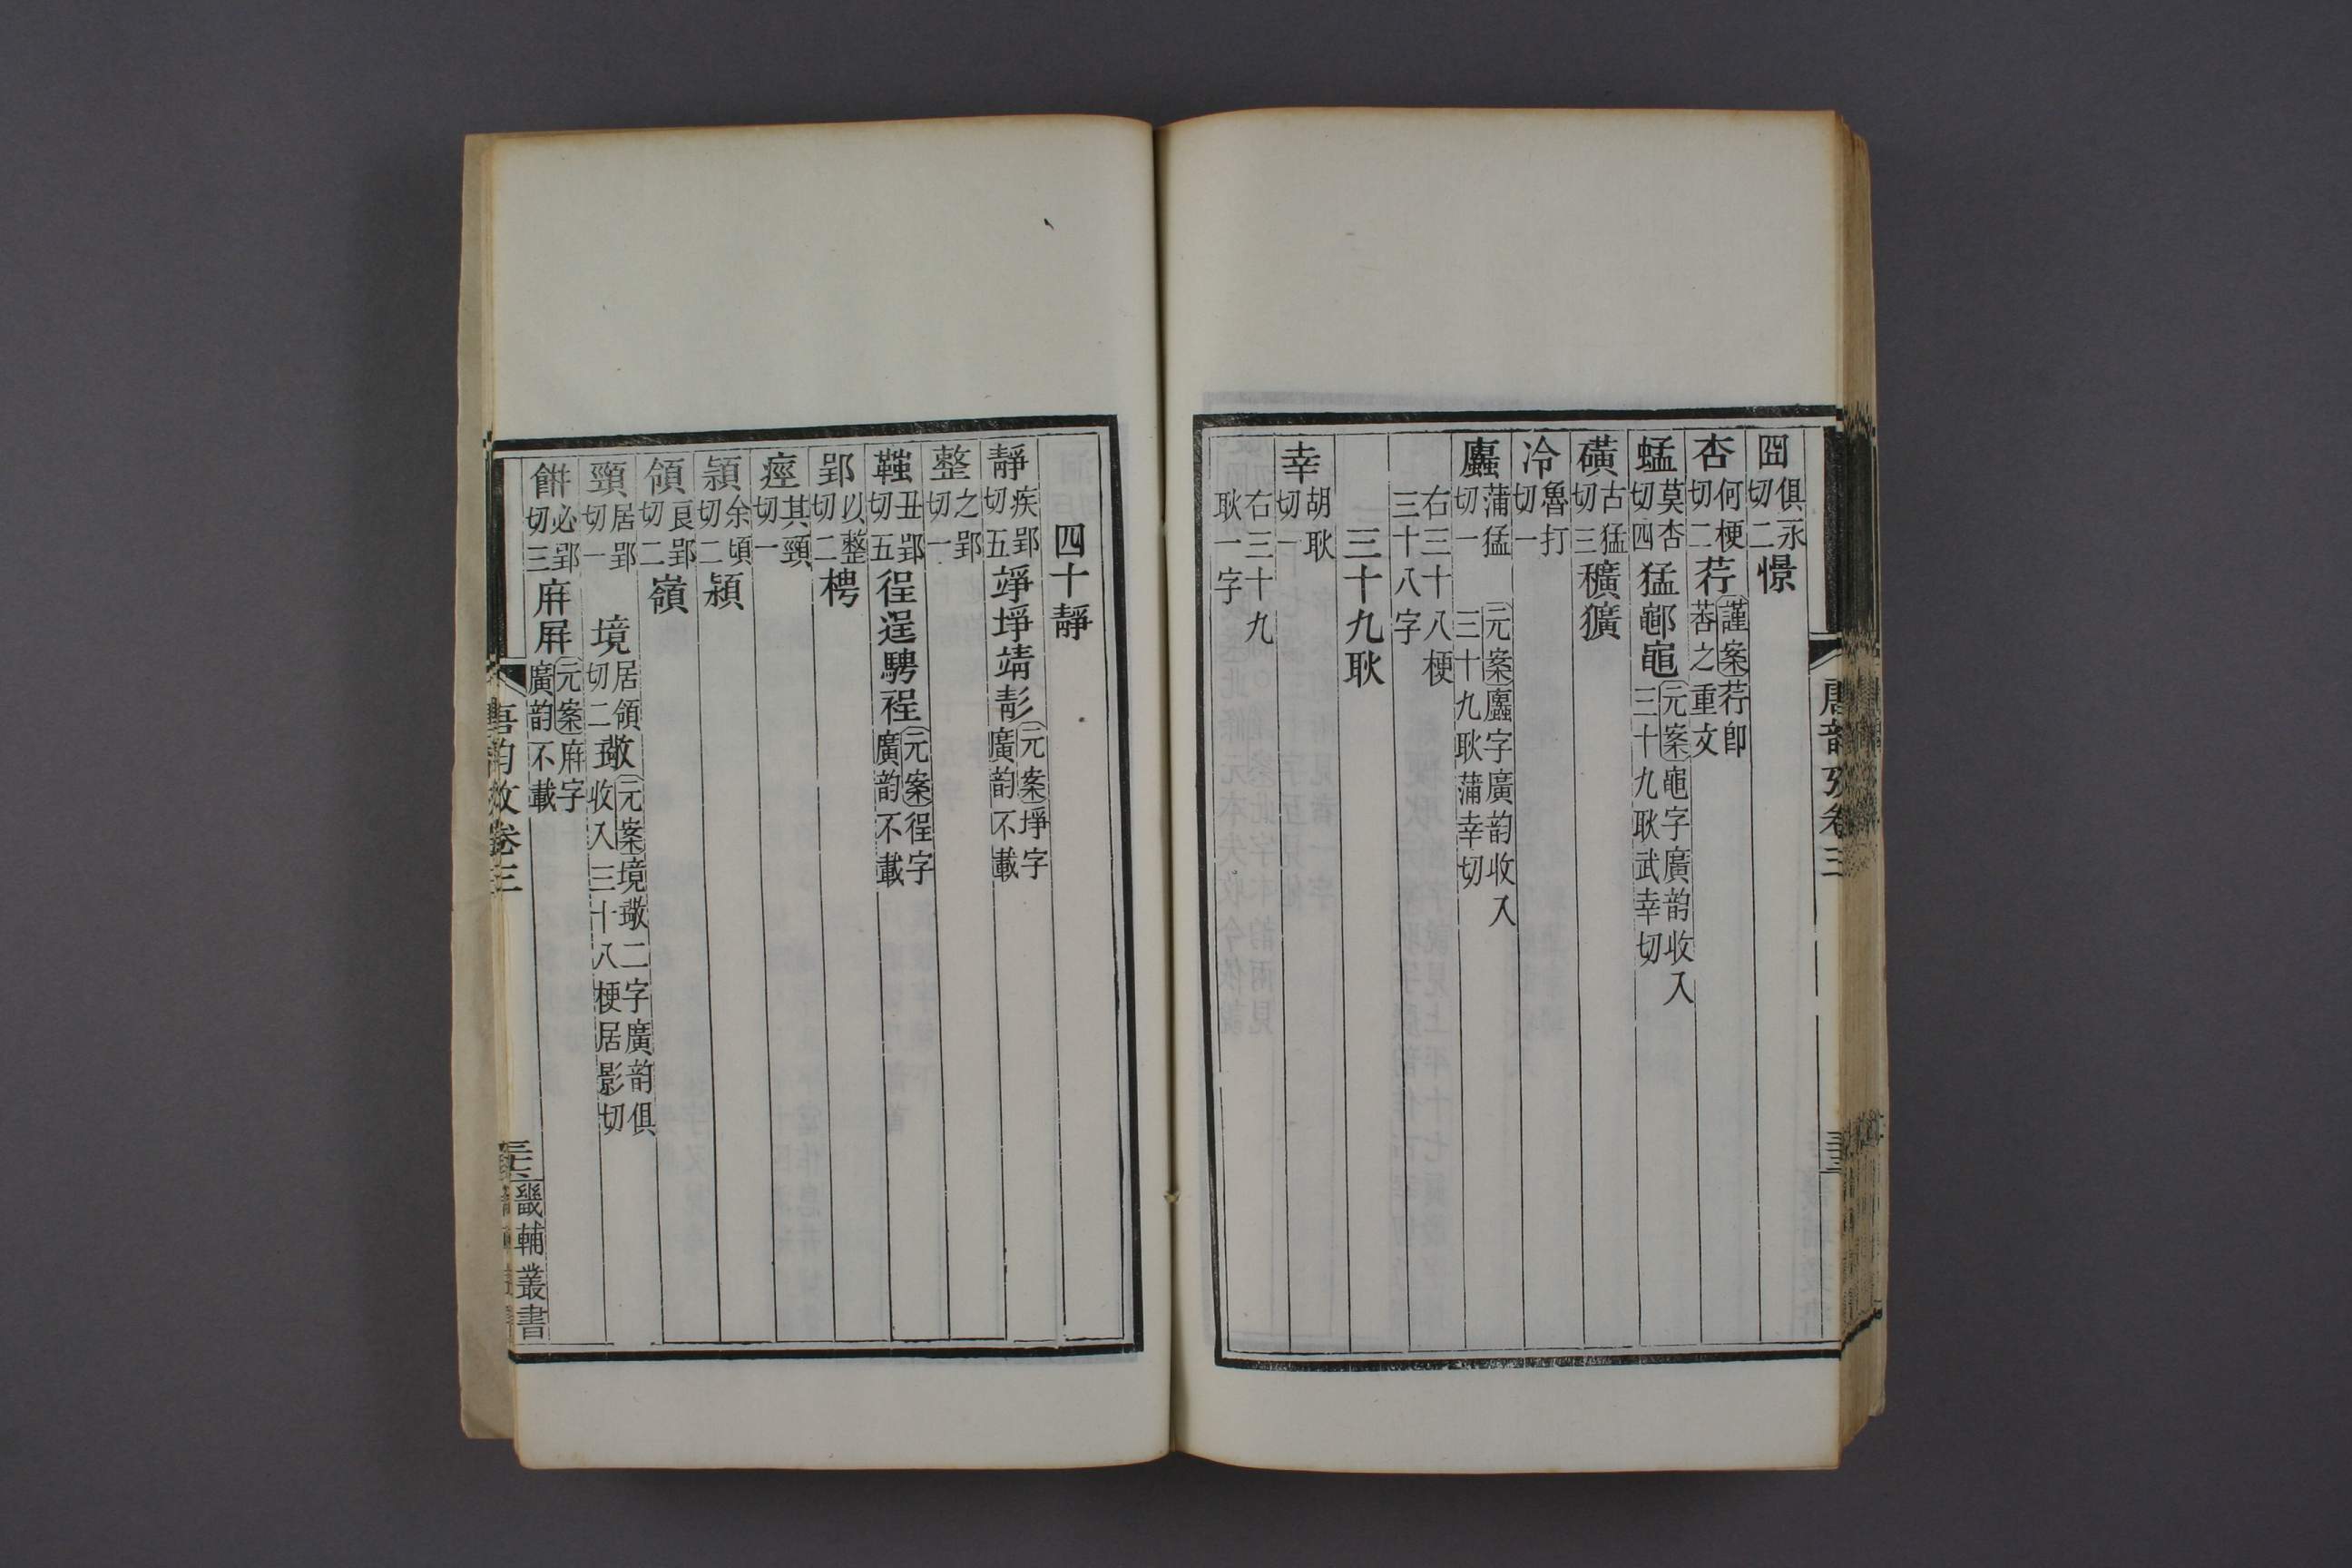 囧俱永切二憬
杏何梗切二荇謹案荇卽莕之重文
蜢莫杏切四猛鄳黽元案黽字廣韵收入三十九耿武幸切
礦古猛切三穬獷
冷魯打切一
蠯蒲猛切一元案蠯字廣韵收入三十九耿蒲幸切
右三十八梗三十八字
三十九耿
幸胡耿切一
右三十九耿一字
唐韵攷卷三
四十靜
靜疾郢切五竫埩靖彭元案埩字廣韵不載
整之郢切一
䞓丑郢切五徎逞騁裎元案徎字廣韵不載
郢以整切二梬
痙其頸切一
潁余頃切二穎
領良郢切二嶺
頸居郢切一 境居領切二璥元案境璥二字廣韵俱收入三十八梗居影切
餠必郢切三庰屛元案庰字廣韵不載
唐韵攷卷三
畿輔叢書